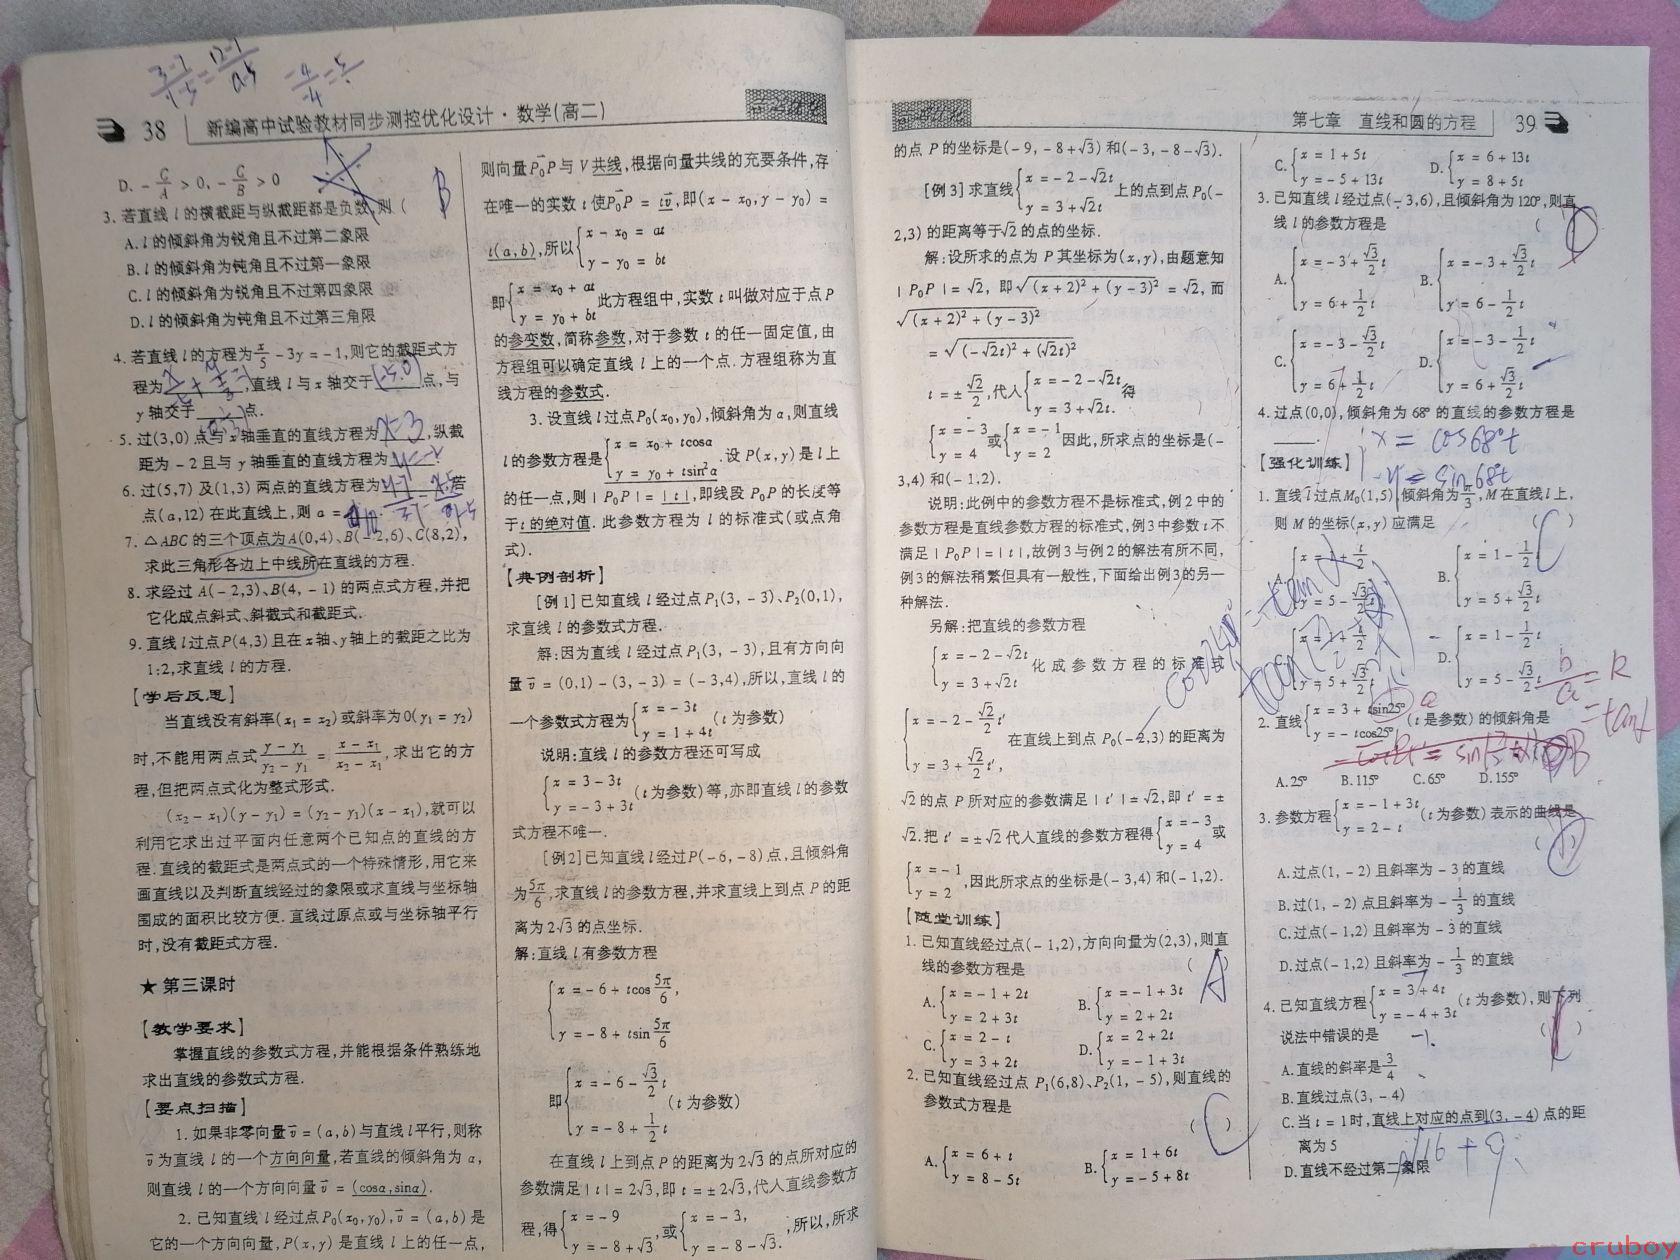 38 新编高中试验教材同步测控优化设计·数学(高二)
D. -C/A > 0, -C/B > 0
3. 若直线 l 的横截距与纵截距都是负数,则 (
B
A. l 的倾斜角为锐角且不过第二象限
B. l 的倾斜角为钝角且不过第一象限
C. l 的倾斜角为锐角且不过第四象限
D. l 的倾斜角为钝角且不过第三角限
4. 若直线 l 的方程为 x/5 - 3y = -1,则它的截距式方
程为 ,直线 l 与 x 轴交于 (-5,0) 点,与
y 轴交于 点.
5. 过(3,0)点与 x 轴垂直的直线方程为 x=3 ,纵截
距为 -2 且与 y 轴垂直的直线方程为 y=-2 .
6. 过(5,7)及(1,3)两点的直线方程为 若
点(a,12)在此直线上,则 a =
7. △ABC 的三个顶点为 A(0,4)、B(-2,6)、C(8,2),
求此三角形各边上中线所在直线的方程.
8. 求经过 A(-2,3)、B(4,-1) 的两点式方程,并把
它化成点斜式、斜截式和截距式.
9. 直线 l 过点 P(4,3) 且在 x 轴、y 轴上的截距之比为
1:2,求直线 l 的方程.
【学后反思】
当直线没有斜率(x₁ = x₂)或斜率为0(y₁ = y₂)
时,不能用两点式 (y - y₁)/(y₂ - y₁) = (x - x₁)/(x₂ - x₁),求出它的方
程,但把两点式化为整式形式.
(x₂ - x₁)(y - y₁) = (y₂ - y₁)(x - x₁),就可以
利用它求出过平面内任意两个已知点的直线的方
程.直线的截距式是两点式的一个特殊情形,用它来
画直线以及判断直线经过的象限或求直线与坐标轴
围成的面积比较方便.直线过原点或与坐标轴平行
时,没有截距式方程.
★ 第三课时
【教学要求】
掌握直线的参数式方程,并能根据条件熟练地
求出直线的参数式方程.
【要点扫描】
1. 如果非零向量 v = (a,b) 与直线 l 平行,则称
v 为直线 l 的一个方向向量,若直线的倾斜角为 α,
则直线 l 的一个方向向量 v = (cosα,sinα).
2. 已知直线 l 经过点 P₀(x₀,y₀),v = (a,b) 是
它的一个方向向量,P(x,y) 是直线 l 上的任一点,
则向量 P₀P 与 V 共线,根据向量共线的充要条件,存
在唯一的实数 t 使 P₀P = tv,即(x - x₀,y - y₀) =
t(a,b),所以 { x - x₀ = at
y - y₀ = bt
即 { x = x₀ + at
y = y₀ + bt 此方程组中,实数 t 叫做对应于点 P
的参变数,简称参数,对于参数 t 的任一固定值,由
方程组可以确定直线 l 上的一个点.方程组称为直
线方程的参数式.
3. 设直线 l 过点 P₀(x₀,y₀),倾斜角为 α,则直线
l 的参数方程是 { x = x₀ + tcosα
y = y₀ + tsin²α .设 P(x,y) 是 l 上
的任一点,则 | P₀P | = | t |,即线段 P₀P 的长度等
于 t 的绝对值.此参数方程为 l 的标准式(或点角
式).
【典例剖析】
[例1] 已知直线 l 经过点 P₁(3,-3)、P₂(0,1),
求直线 l 的参数式方程.
解:因为直线 l 经过点 P₁(3,-3),且有方向向
量 v = (0,1) - (3,-3) = (-3,4),所以,直线 l 的
一个参数式方程为 { x = -3t
y = 1 + 4t (t 为参数)
说明:直线 l 的参数方程还可写成
{ x = 3 - 3t
y = -3 + 3t (t 为参数)等,亦即直线 l 的参数
式方程不唯一.
[例2] 已知直线 l 经过 P(-6,-8) 点,且倾斜角
为 5π/6,求直线 l 的参数方程,并求直线上到点 P 的距
离为 2√3 的点坐标.
解:直线 l 有参数方程
{ x = -6 + tcos 5π/6,
y = -8 + tsin 5π/6
即 { x = -6 - √3/2 t
y = -8 + 1/2 t (t 为参数)
在直线 l 上到点 P 的距离为 2√3 的点所对应的
参数满足 | t | = 2√3,即 t = ±2√3,代人直线参数方
程,得 { x = -9
y = -8 + √3, 或 { x = -3,
y = -8 - √3. ,所以,所求
第七章 直线和圆的方程 39
的点 P 的坐标是(-9,-8+√3)和(-3,-8-√3).
[例3] 求直线 { x = -2 - √2t
y = 3 + √2t 上的点到点 P₀(-
2,3) 的距离等于 √2 的点的坐标.
解:设所求的点为 P 其坐标为(x,y),由题意知
| P₀P | = √2, 即 √((x+2)² + (y-3)²) = √2, 而
√((x+2)² + (y-3)²)
= √((-√2t)² + (√2t)²)
t = ± √2/2,代人 { x = -2 - √2t
y = 3 + √2t. 得
{ x = -3
y = 4 或 { x = -1
y = 2 因此,所求点的坐标是(-
3,4) 和(-1,2).
说明:此例中的参数方程不是标准式,例2中的
参数方程是直线参数方程的标准式,例3中参数 t 不
满足 | P₀P | = | t |,故例3与例2的解法有所不同,
例3的解法稍繁但具有一般性,下面给出例3的另一
种解法.
另解:把直线的参数方程
{ x = -2 - √2t
y = 3 + √2t 化成参数方程的标准式
{ x = -2 - √2/2 t′
y = 3 + √2/2 t′, 在直线上到点 P₀(-2,3) 的距离为
√2 的点 P 所对应的参数满足 | t′ | = √2,即 t′ = ±
√2.把 t′ = ±√2 代人直线的参数方程得 { x = -3
y = 4 或
{ x = -1
y = 2 ,因此所求点的坐标是(-3,4)和(-1,2).
【随堂训练】
1. 已知直线经过点(-1,2),方向向量为(2,3),则直
线的参数方程是 ( A )
A. { x = -1 + 2t
y = 2 + 3t B. { x = -1 + 3t
y = 2 + 2t
C. { x = 2 - t
y = 3 + 2t D. { x = 2 + 2t
y = -1 + 3t
2. 已知直线经过点 P₁(6,8)、P₂(1,-5),则直线的
参数式方程是
( C )
A. { x = 6 + t
y = 8 - 5t B. { x = 1 + 6t
y = -5 + 8t
C. { x = 1 + 5t
y = -5 + 13t D. { x = 6 + 13t
y = 8 + 5t
3. 已知直线 l 经过点(-3,6),且倾斜角为120°,则直
线 l 的参数方程是 ( D
A. { x = -3 + √3/2 t
y = 6 + 1/2 t B. { x = -3 + √3/2 t
y = 6 - 1/2 t
C. { x = -3 - √3/2 t
y = 6 + 1/2 t D. { x = -3 - 1/2 t
y = 6 + √3/2 t
4. 过点(0,0),倾斜角为68°的直线的参数方程是
x = cos68°t
y = sin68°t
【强化训练】
1. 直线 l 过点 M₀(1,5),倾斜角为 π/3,M 在直线 l 上,
则 M 的坐标(x,y) 应满足 ( C )
A. { x = 1 + t/2
y = 5 - √3/2 t B. { x = 1 - 1/2 t
y = 5 + √3/2 t
C. { x = 1 + t/2
y = 5 + √3/2 t D. { x = 1 - 1/2 t
y = 5 - √3/2 t
2. 直线 { x = 3 + tsin25°
y = -tcos25° (t 是参数) 的倾斜角是
B
A. 25° B. 115° C. 65° D. 155°
3. 参数方程 { x = -1 + 3t
y = 2 - t (t 为参数) 表示的曲线是
( D )
A. 过点(1,-2) 且斜率为 -3 的直线
B. 过(1,-2) 点且斜率为 -1/3 的直线
C. 过点(-1,2) 且斜率为 -3 的直线
D. 过点(-1,2) 且斜率为 -1/3 的直线
4. 已知直线方程 { x = 3 + 4t
y = -4 + 3t (t 为参数),则下列
说法中错误的是 ( )
A. 直线的斜率是 3/4
B. 直线过点(3,-4)
C. 当 t = 1 时,直线上对应的点到(3,-4) 点的距
离为5
√16+9
D. 直线不经过第二象限
cruboy